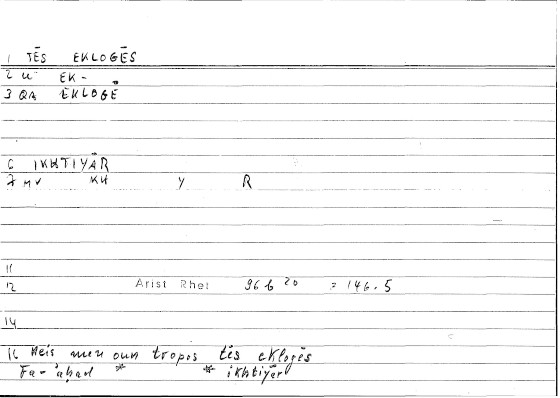 1 TĒS EKLOGĒS
2 U- EK-
3 QA EKLOGĒ
6 IKHTIYĀR
7 MV KH Y R
11
12 Arist Rhet 96b 20 = 146.5
14
16 Heis men oun tropos tēs eklogēs
Fa-'aḥad * * ikhtiyār